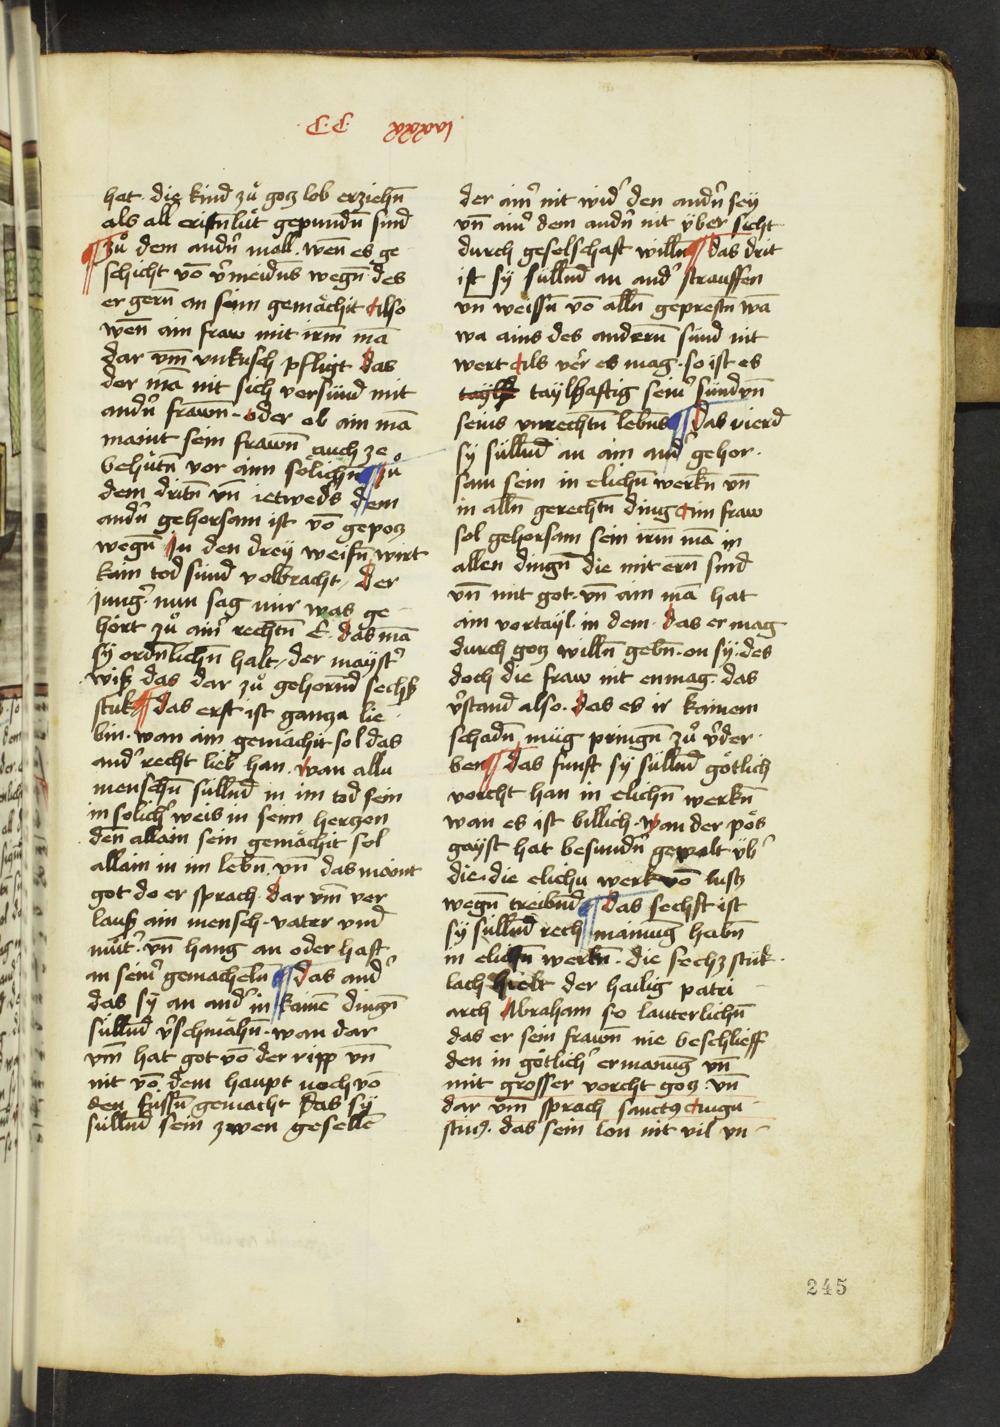 C.C. xxxxvi
hat. die kind zů gotz lob erziehn̄
als all cristnlüt gepundn̄ sind
¶ Zů dem andn̄ moll. wen̄ es ge
schicht vō v̓meidūs wegn̄. des
er gern̄ an seim gemächit Also
wen̄ ain fraw mit irm mā
dar vm̄ vnkusch pfligt Das
der mā nit sich versünd mit
andn̄ frawn. Oder ob ain mā
maint sein frawn̄ auch ze
behůtn̄ vor aim sölichn̄ ¶ Zů
dem dritn̄ vn̄ ietweds dem
andn̄ gehorsam ist vō gepotz
wegn̄ In den dreÿ weisn̄ wirt
kain tod sünd volbracht / Der
Jung̓. nun sag mir was ge
hört zů ain̓ rechtn̄ E. das mā
sÿ ordnlichn̄ halt / der maÿst̓
wiß das dar zů gehornd sechß
stuk ¶ Das erst ist gantza lie
bin. wan ain gemächit sol das
and̓ recht lieb han. wan alla
menschn̄ sülln̄d in im tod sein
in solich̓ weis in seim hertzen
den̄ allain sein gemächit sol
allain in im lebn̄. vn̄ das maint
got do er sprach. Dar vm̄ ver
lauß ain mensch. vater vnd
můt̓. vn̄ hang an oder haft
an sein̓ gemacheln̄ ¶ Das and̓
das sÿ an and̓ in kainē dingn̄
sülln̄d v̓schmähn̄. wan dar
vm̄ hat got vō der ripp vn̄
nit vō dem haupt noch vō
den füssn̄ gemacht Das sÿ
sülln̄d sein zwen gesellē
der ain̓ nit wid̓ den andn̄ seÿ
vn̄ ain̓ dem andn̄ nit ÿber sicht
durch geselschaft willn̄ ¶ Das drit
ist sÿ sülln̄d an and̓ strauffen
vn̄ weissn̄ vō alln̄ geprestn̄ wā
wa ains des anderen̄ sünd nit
wert Als v̓er es mag. so ist es
taylh taÿlhaftig sein̓ sünd vn̄
seins vnrechtn̄ lebns ¶ Das vierd
sÿ sülln̄d an ain and̓ gehor.
sam sein in elichn̄ werkn̄ vn̄
in alln̄ gerechtn̄ ding Ain fraw
sol gehorsam sein irm mā in
allen dingn̄ die mit ern̄ sind
vn̄ mit got. vn̄ ain mā hat
ain vortaÿl. in dem. Das er mag
durch gotz willn̄ gebn̄. on sÿ. des
doch die fraw nit enmag. das
v̓stand also. Das es ir kainem
schadn̄ müg pringn̄ zů v̓der.
ben ¶ Das funft sÿ sülln̄d götlich
vorcht han in elichn̄ werkn̄
wan es ist billich. Wan der pös
gaÿst hat besundn̄ gewalt ÿb̓
die. die elichu werk vō lustz
wegn̄ treibnd ¶ Das sechst ist
sÿ sülln̄d rech manung habn̄
in elichn̄ werkn̄. die sechz stük.
lach hielt der hailig patri
arch Abraham so lauterlichn̄
das er sein frawn̄ nie beschlieff
den in götlich̓ ermanūg vn̄
mit grosser vorcht gotz vn̄
dar vm̄ sprach sanctꝰ Augu
stinꝰ. das sein lon nit vil vn
245